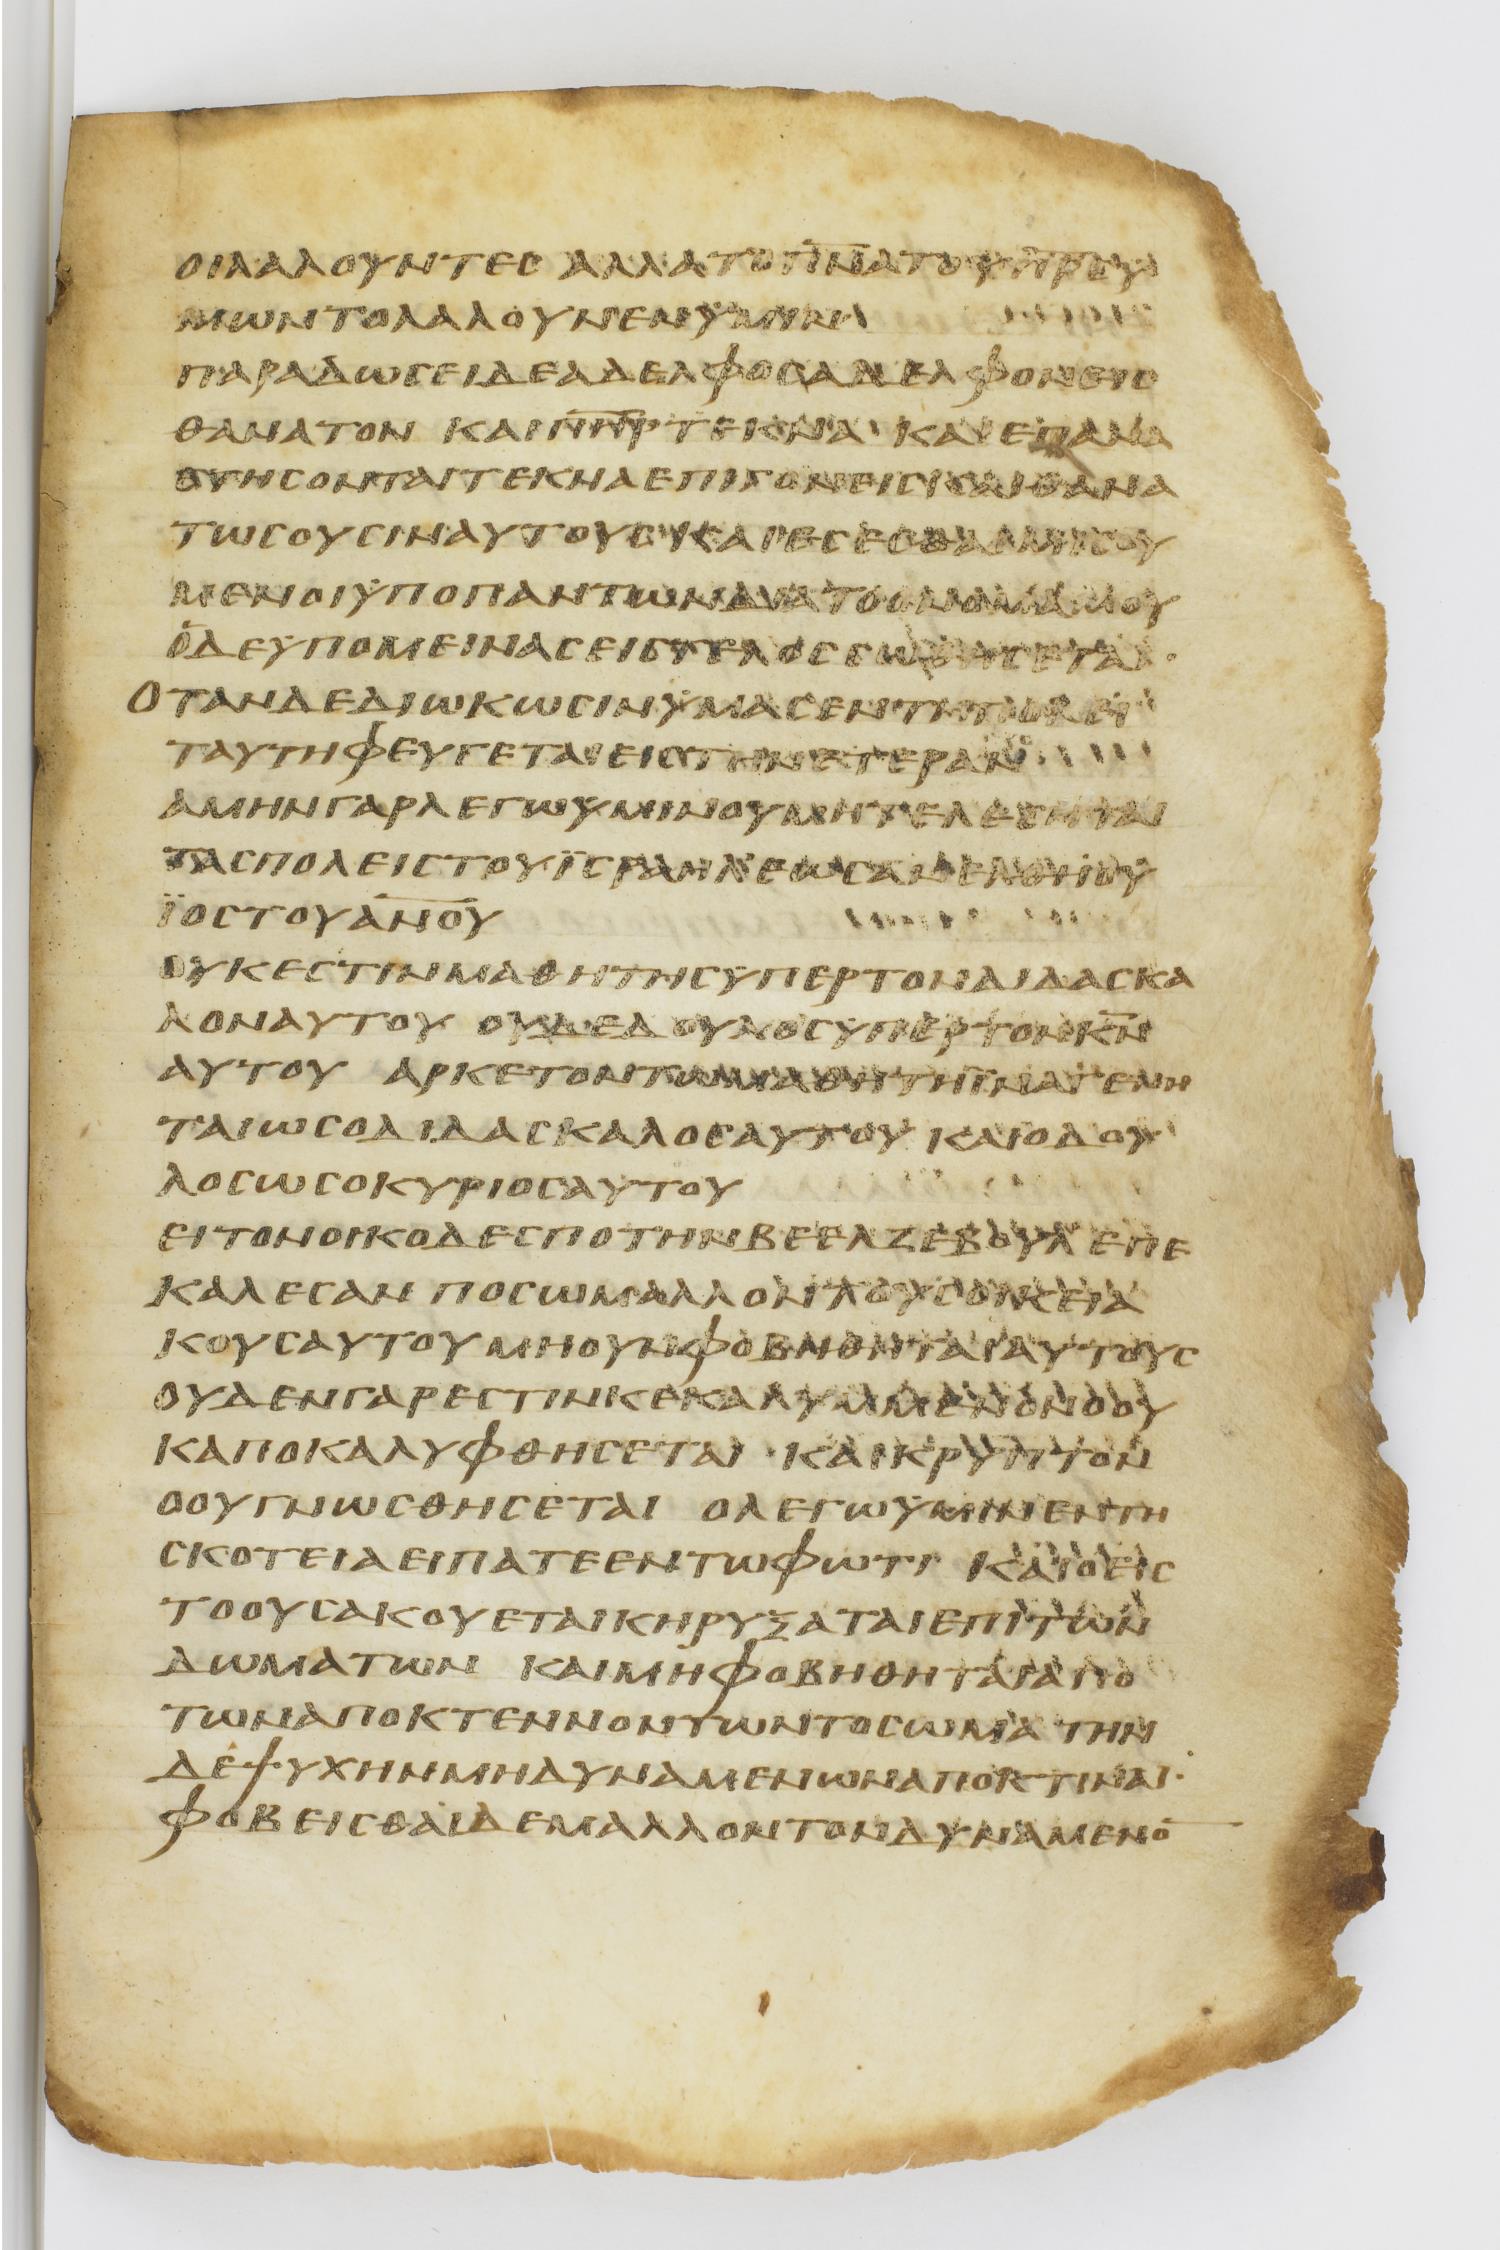 οιλαλουντεσ αλλατοπ̅ν̅ατουπ̅ρ̅σϋ
μωντολαλουνενϋμιν
παραδωσειδεαδελφοσαδελφονεισ
θανατον καιπ̅η̅ρ̅τεκνα καιεπανα
στησονταιτεκναεπιγονεισκαιθανα
τωσουσιναυτουσ καιεσεσθαιμισου
μενοιϋποπαντωνδιατοονομαμου
οδεϋπομεινασειστελοσσωθησεται·
οτανδεδιωκωσινϋμασεντηπολει
ταυτηφευγεταιεισ̣τηνετεραν
αμηνγαρλεγωϋμινουμητελεσηται
τασπολειστουϊσραηλεωσανελθηου
ϊοστουα̅ν̅ο̅υ̅
ουκεστινμαθητησϋπερτονδιδασκα
λοναυτου ουδεδουλοσϋπερτονκ̅ν̅
αυτου αρκετοντωμαθητηϊναγενη
ταιωσοδιδασκαλοσαυτου καιοδου
λοσωσοκυριοσαυτου
ειτονοικοδεσποτηνβεελζεβουλ επε
καλεσαν ποσωμαλλοντουσοικεια
κουσαυτουμηουνφοβηθηταιαυτουσ
ουδενγαρεστινκεκαλυμμενονοου
καποκαλυφθησεται· καικρυπτον
οουγνωσθησεται ολεγωϋμινεντη
σκοτειαειπατεεντωφωτι καιοεισ
τοουσακουεταικηρυξαταιεπιτων
δωματων καιμηφοβηθηταιαπο
τωναποκτεννοντωντοσωμα την
δεψυχηνμηδυναμενωναποκτιναι·
φοβεισθαιδεμαλλοντονδυναμενο̅